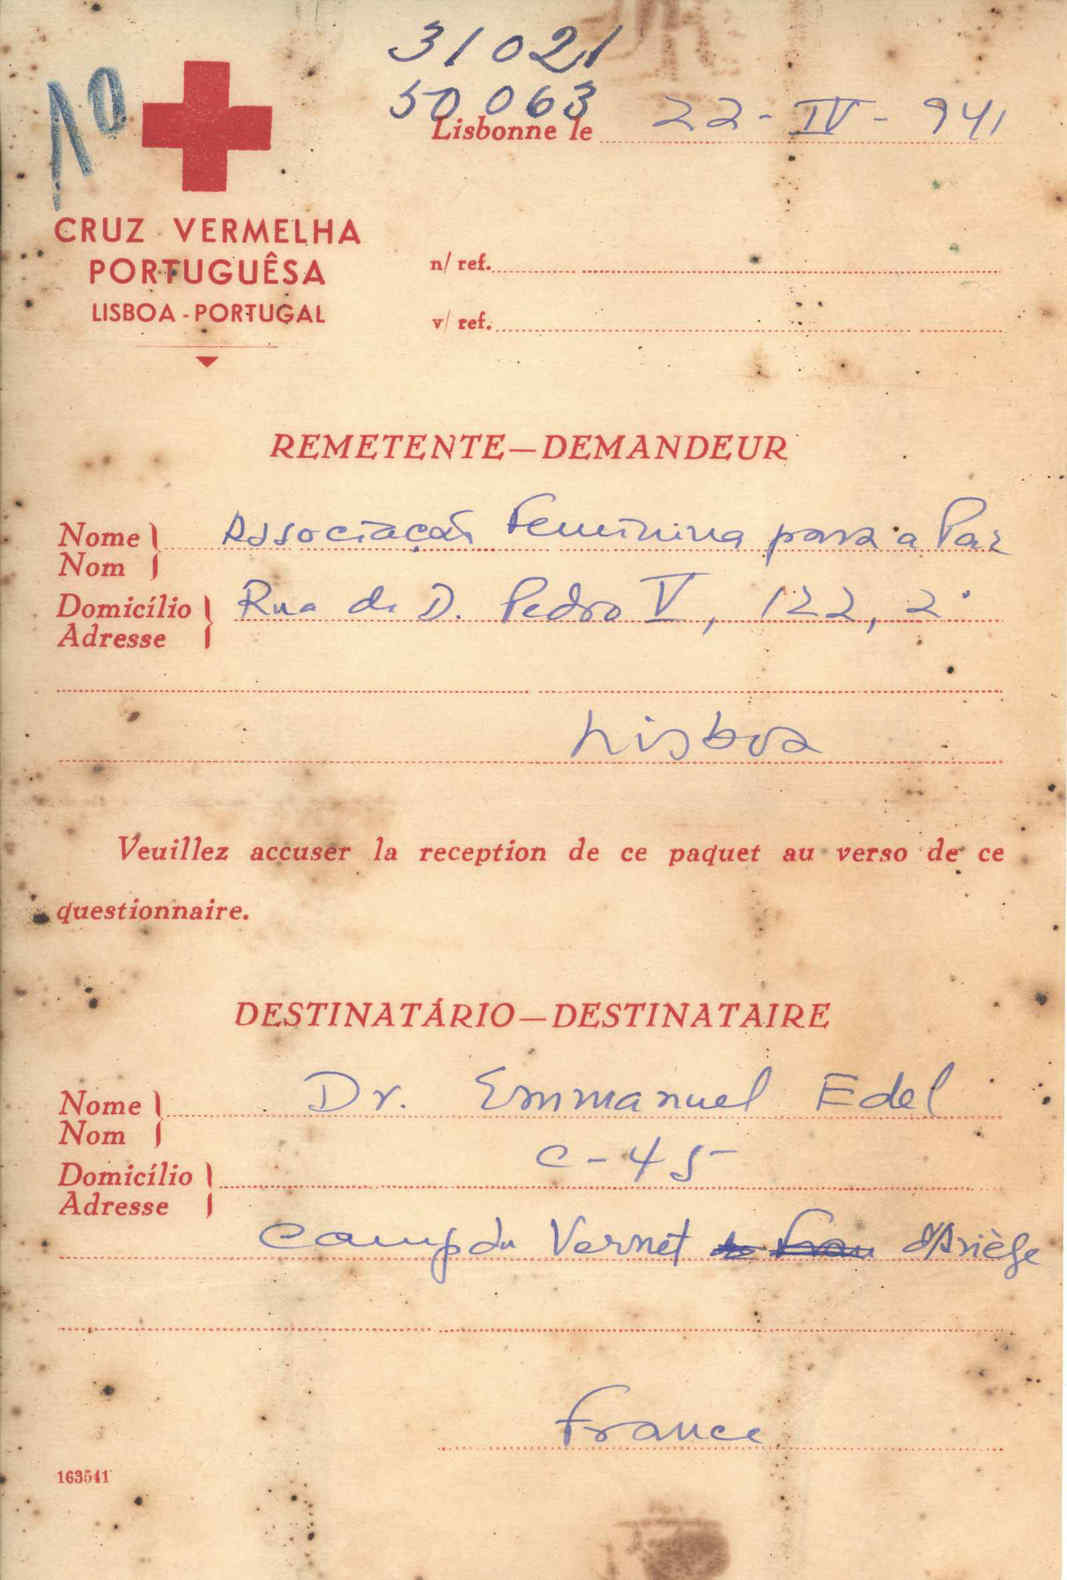 31021
50063
Nº
Lisbonne le 22-IV-941
CRUZ VERMELHA
PORTUGUÊSA
LISBOA-PORTUGAL
n/ ref.
v/ ref.
REMETENTE—DEMANDEUR
Nome
Nom
Associação Feminina para a Paz
Domicílio
Adresse
Rua de D. Pedro V, 122, 2º
Lisboa
Veuillez accuser la reception de ce paquet au verso de ce
questionnaire.
DESTINATÁRIO—DESTINATAIRE
Nome
Nom
Dr. Emmanuel Edel
C-45
Domicílio
Adresse
Camp du Vernet d'Ariège
France
163541